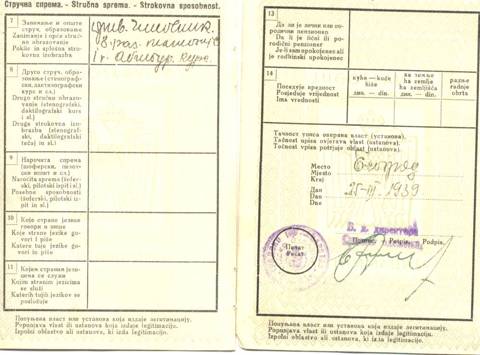 Стручна спрема. - Stručna sprema. - Strokovna sposobnost.
7
Занимање и опште
струч. образовање
Zanimanje i opće
stručno obrazovanje
Poklic in splošna stro-
kovna izobrazba
8
Друго струч. образо-
вање (стенографски,
дактилографски
курс и сл.)
Drugo stručno obrazo-
vanje (stenografski,
daktilografski kurs
i sl.)
Druga strokovna izo-
brazba (stenograf-
ski, daktilografski
tečaj in sl.)
9
Нарочита спрема
(шоферски, пилот-
ски испит и сл.)
Naročita sprema (šofer-
ski, pilotski ispit i sl.)
Posebne sposobnosti
(šoferski, pilotski iz-
pit in sl.)
10
Које стране језике
говори и пише
Koje strane jezike go-
vori i piše
Katere tuje jezike go-
vori in piše
11
Којим страним јези-
цима се служи
Kojim stranim jezicima
se služi
Katerih tujih jezikov se
poslužuje
Попуњава власт или установа која издаје легитимацију.
Popunjava vlast ili ustanova koja izdaje legitimaciju.
Izpolni oblastvo ali ustanova, ki izda legitimacijo.
13
Да ли је лични или по-
родични пензионер
Da li je lični ili po-
rodični penzioner
Je-li sam upokojenec ali
je rodbinski upokojenec
14
Поседује вредност
Posjeduje vrijednost
Ima vrednosti
кућа — kuće
hiše
дин. — din.
на земље
na zemlje
na zemljišča
дин. — din.
радње
radnje
obrta
дин. — din.
Тачност уписа оверава власт (установа).
Tačnost upisa ovjerava vlast (ustanova).
Točnost vpisa potrjuje oblast (ustanova).
Место
Mjesto
Kraj
Београд
Дан
Dan
Dne
25-III-1939
В. д. директора
Печат
Pečat
Потпис, — Potpis, Podpis,
Попуњава власт или установа која издаје легитимацију.
Popunjava vlast ili ustanova koja izdaje legitimaciju.
Izpolni oblastvo ali ustanova, ki izda legitimacijo.